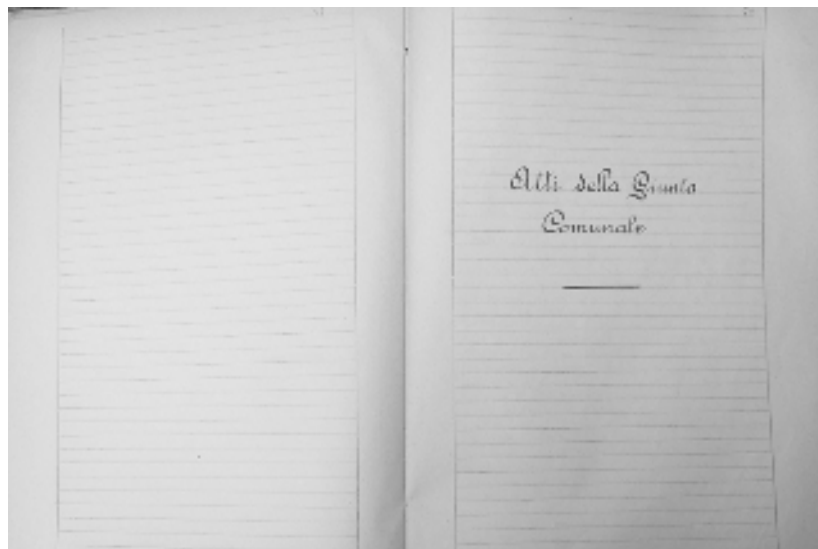 Atti della Giunta
Comunale